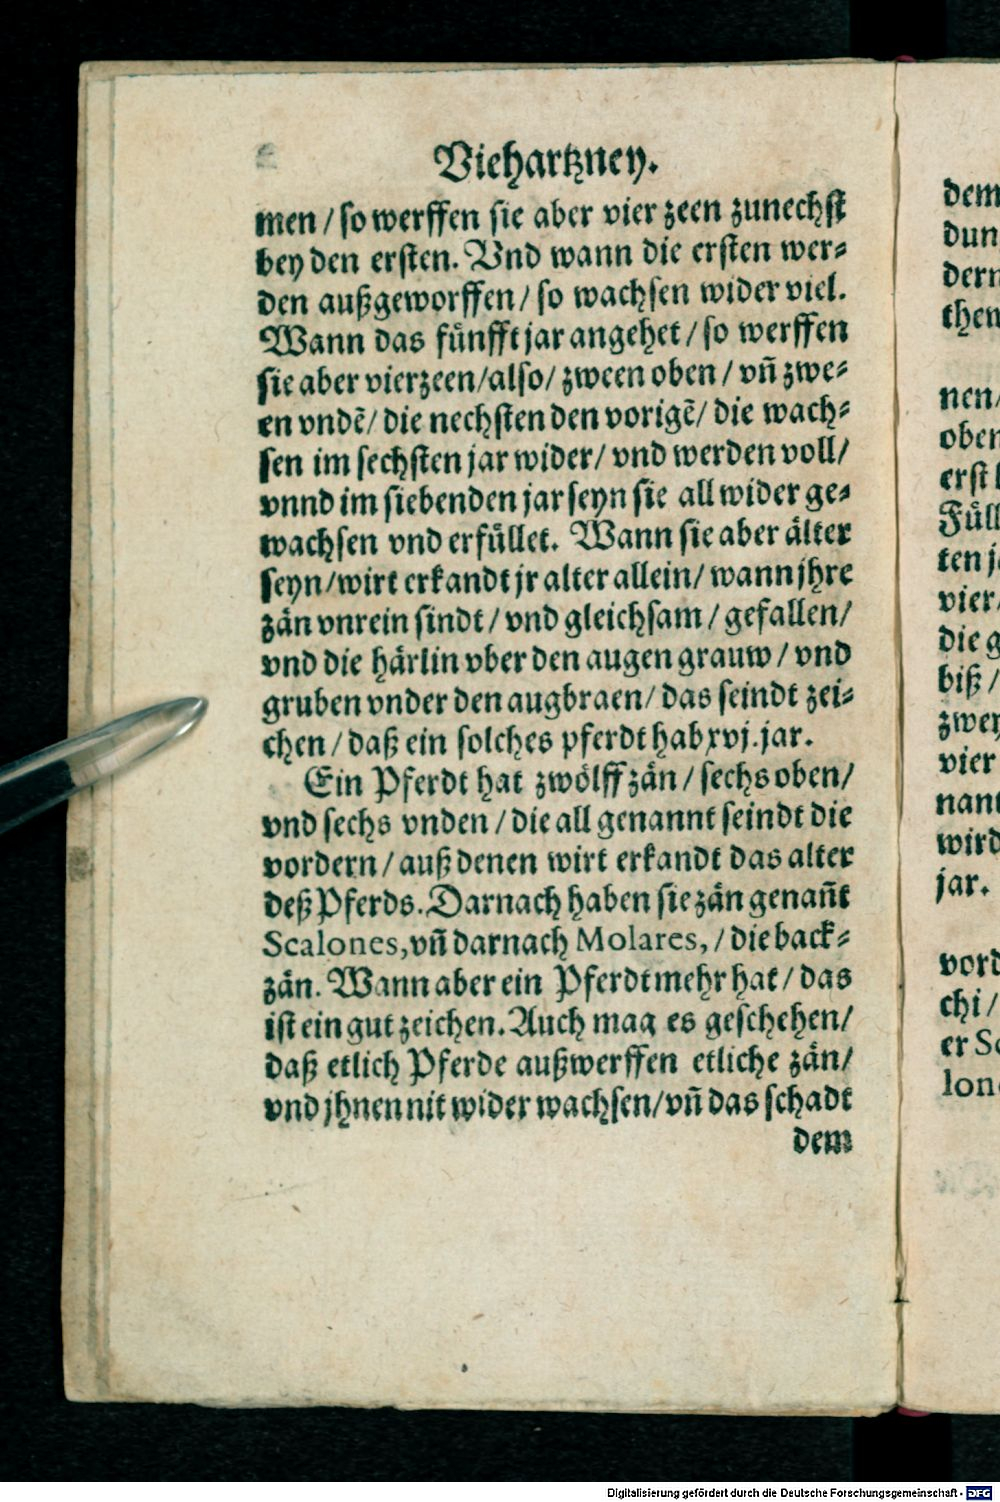 Viehartzney.
men / so werffen sie aber vier zeen zunechst
bey den ersten. Vnd wann die ersten wer⸗
den außgeworffen / so wachsen wider viel.
Wann das fünfft jar angehet / so werffen
sie aber vier zeen/also/ zween oben / vñ zwe⸗
en vndẽ/ die nechsten den vorigẽ/ die wach⸗
sen im sechsten jar wider/ vnd werden voll/
vnnd im siebenden jar seyn sie all wider ge⸗
wachsen vnd erfüllet. Wann sie aber älter
seyn/wirt erkandt jr alter allein/ wann jhre
zän vnrein sindt / vnd gleichsam / gefallen/
vnd die härlin vber den augen grauw / vnd
gruben vnder den augbraen/ das seindt zei⸗
chen / daß ein solches pferdt hab xvj. jar.
Ein Pferdt hat zwölff zän / sechs oben/
vnd sechs vnden / die all genannt seindt die
vordern / auß denen wirt erkandt das alter
deß Pferds. Darnach haben sie zän genañt
Scalones, vñ darnach Molares, / die back⸗
zän. Wann aber ein Pferdt mehr hat / das
ist ein gut zeichen. Auch mag es geschehen/
daß etlich Pferde außwerffen etliche zän/
vnd jhnen nit wider wachsen/vñ das schadt
dem
dem
dun
dern
then
nen/
oben
erst
Füll
ten
vier/
die g
biß /
zwey
vier
nant
wird
jar.
vord
chi /
er Sc
lone
Digitalisierung gefördert durch die Deutsche Forschungsgemeinschaft - DFG